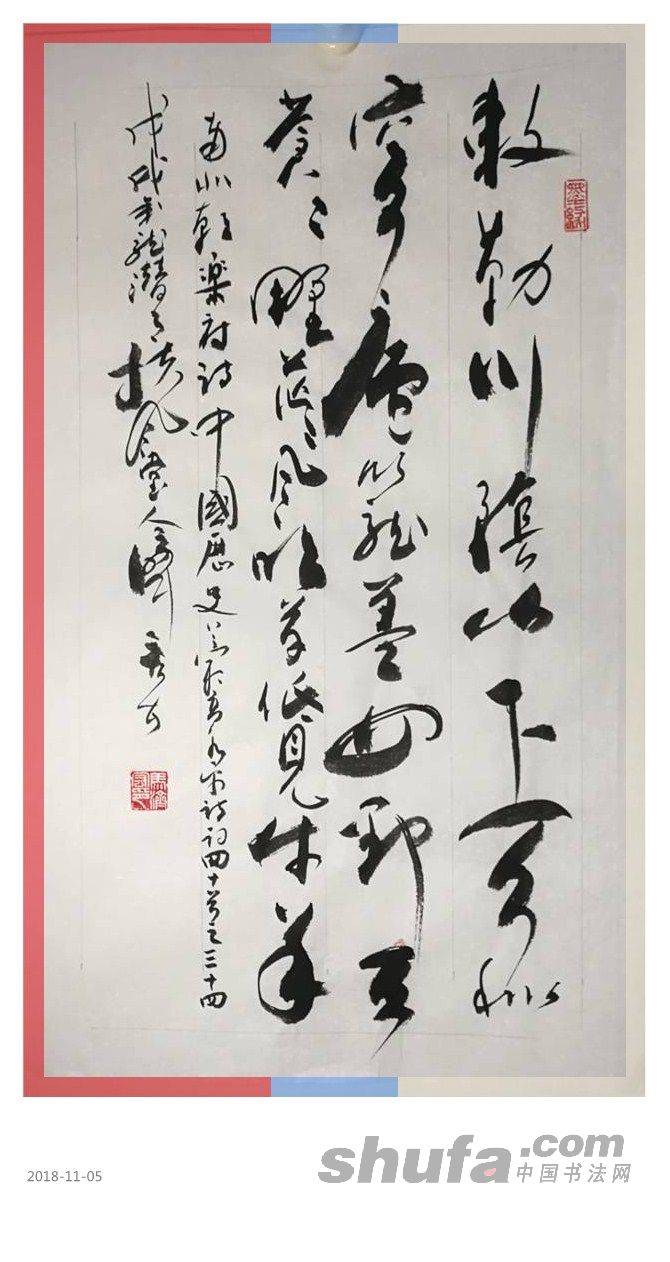 敕勒川陰山下天似
穹廬籠蓋四野天
蒼〻野茫〻風吹草低見牛羊
南北朝樂府詩中國歷史詩詞四十首之三十四
戊戌年龍潛月扶風堂人
2018-11-05
shufa.com
中国书法网